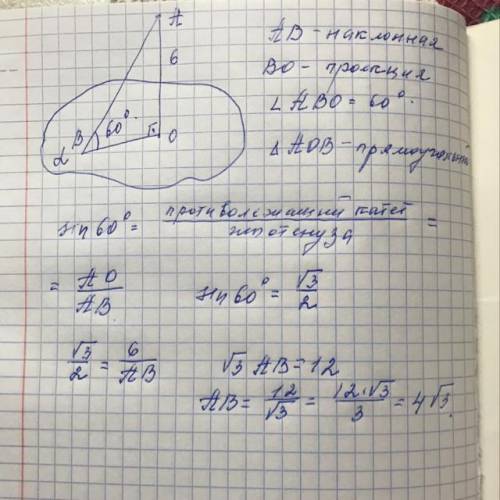 A
6
B 60° O
α
AB – наклонная
BO – проекция
∠ABO = 60°.
△AOB – прямоугольный
sin 60° = противолежащий катет / гипотенуза =
= AO / AB
sin 60° = √3 / 2
√3 / 2 = 6 / AB
√3 AB = 12
AB = 12 / √3 = 12·√3 / 3 = 4√3.